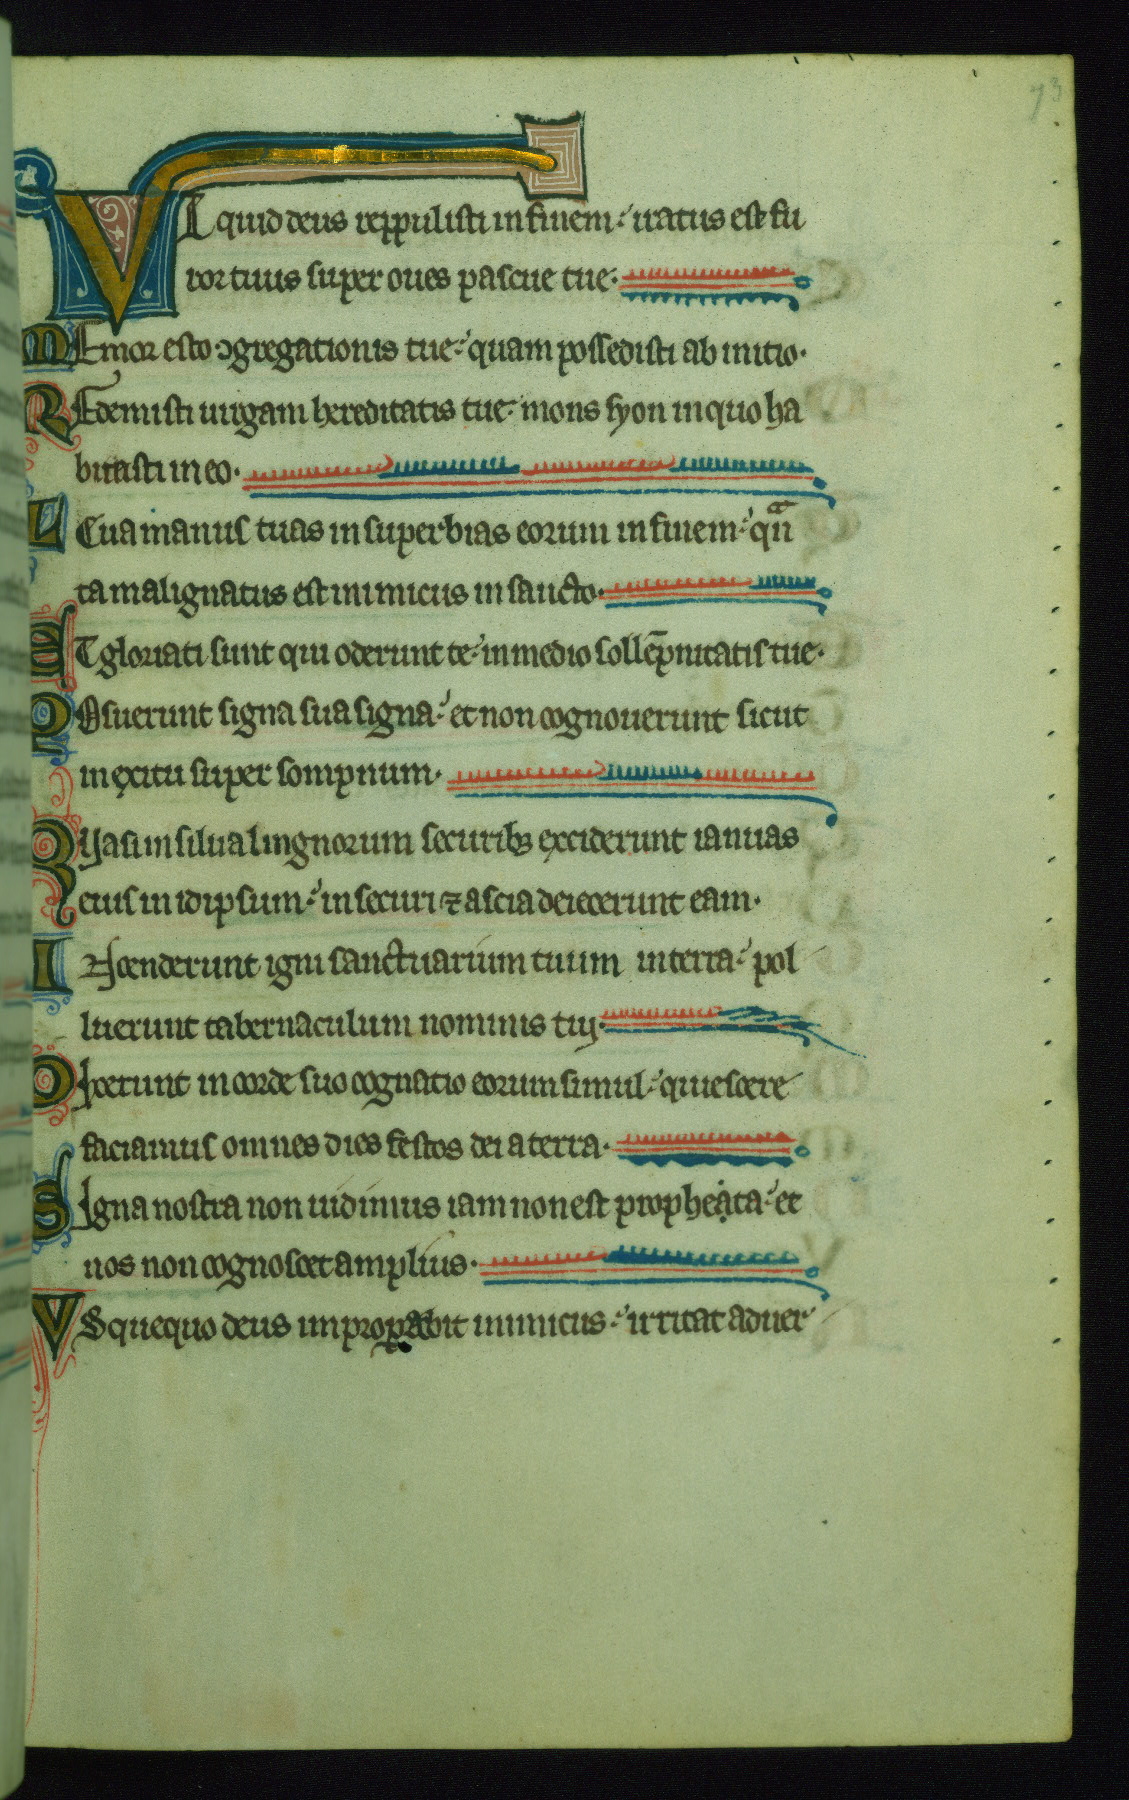 73
VT quid deus reppulisti in finem: iratus est fu
ror tuus super oues pascue tue.
MEmor esto ꝯgregationis tue: quam possedisti ab initio.
REdemisti uirgam hereditatis tue: mons syon in quo ha
bitasti in eo.
LEua manus tuas in superbias eorum in finem: qͣn
ta malignatus est inimicus in sancto.
ET gloriati sunt qui oderunt te: in medio sollēpnitatis tue.
POsuerunt signa sua signa: et non cognouerunt sicut
in exitu super sompnum.
QVasi in silua lingnorum securibꝫ exciderunt ianuas
eius in idipsum: in securi ⁊ ascia deiecerunt eam.
INcenderunt igni sanctuarium tuum in terra: pol
luerunt tabernaculum nominis tuj.
DIxerunt in corde suo cognatio eorum simul: quiescere
faciamus omnes dies festos dei a terra.
SIgna nostra non uidimus iam non est propheata: et
nos non cognoscet amplius.
VSquequo deus improperabit inimicus: irritat aduer